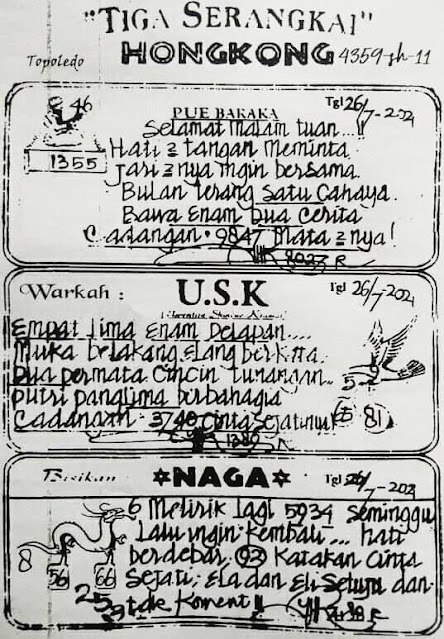 "TIGA SERANGKAI"
Topoledo HONGKONG 4359-jh-11
46
1355
PUE BARAKA
Tgl 26/7-2021
Selamat malam tuan...!!
Hati 2 tangan meminta
Jari 2 nya ingin bersama.
Bulan terang satu Cahaya.
Bawa Enam Dua Cerita
Cadangan • 9847 Mata 2 nya!
Warkah :
U.S.K
Tgl 26/7-2021
Empat lima Enam Delapan....
Muka belakang Elang berkita.
Dua permata Cincin tunangan..
putri panglima berbahagia
Cadangan : 3740 Cinta sejatinya!
5
65 81
Bisikan
NAGA
Tgl 26/7-2021
6 Melirik lagi 5934 Seminggu
Lalu ingin kembali... hati
berdebar, 92 Katakan Cinta
Sejati; Ela dan Eli Setuju dan
tdk Koment !!
8
56 66
25